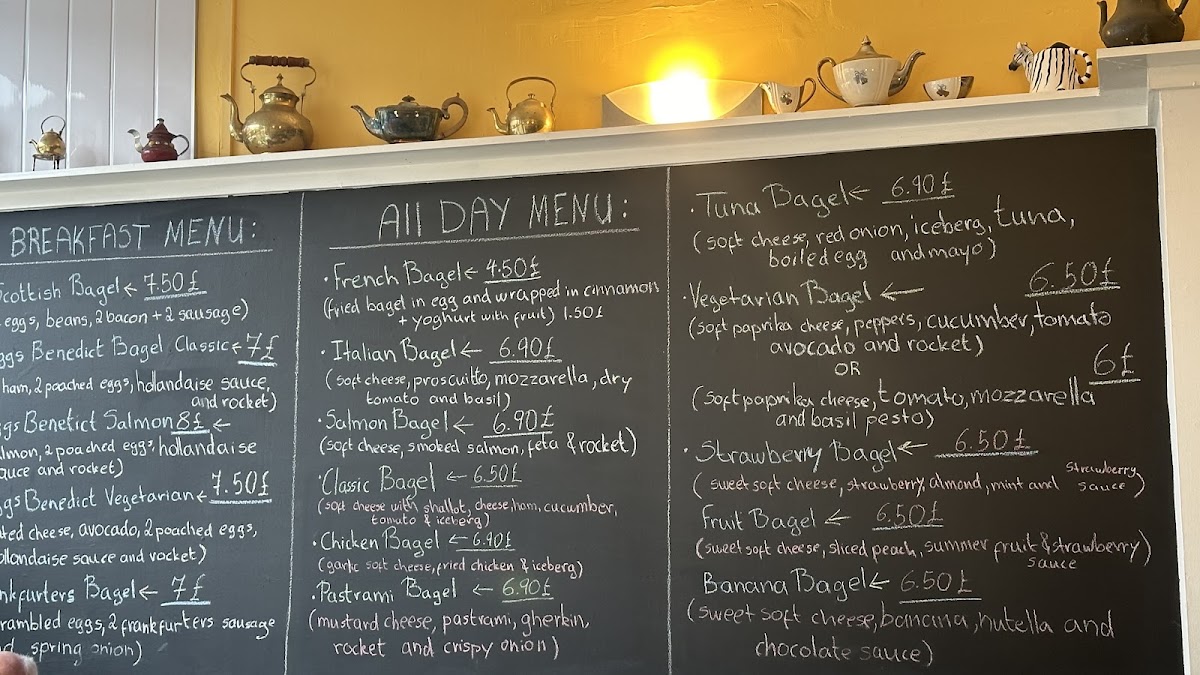 BREAKFAST MENU:
Scottish Bagel← 7.50£
eggs, beans, 2 bacon + 2 sausage)
ggs Benedict Bagel Classic← 7£
ham, 2 poached eggs, hollandaise sauce,
and rocket)
ggs Benetict Salmon 8£ ←
almon, 2 poached eggs, hollandaise
auce and rocket)
ggs Benedict Vegetarian← 7.50£
ted cheese, avocado, 2 poached eggs,
ollandaise sauce and rocket)
nkfurters Bagel← 7£
rambled eggs, 2 frankfurters sausage
d spring onion)
All DAY MENU:
·French Bagel← 4.50£
(fried bagel in egg and wrapped in cinnamon
+ yoghurt with fruit) 1.50£
·Italian Bagel← 6.90£
(soft cheese, proscuitto, mozzarella, dry
tomato and basil)
·Salmon Bagel← 6.90£
(soft cheese, smoked salmon, feta & rocket)
·Classic Bagel ← 6.50£
(soft cheese with shallot, cheese, ham, cucumber,
tomato & iceberg)
·Chicken Bagel ← 6.90£
(garlic soft cheese, fried chicken & iceberg)
·Pastrami Bagel ← 6.90£
(mustard cheese, pastrami, gherkin,
rocket and crispy onion)
·Tuna Bagel← 6.90£
(soft cheese, red onion, iceberg, tuna,
boiled egg and mayo)
·Vegetarian Bagel ← 6.50£
(soft paprika cheese, peppers, cucumber, tomato
avocado and rocket)
OR 6£
(soft paprika cheese, tomato, mozzarella
and basil pesto)
·Strawberry Bagel← 6.50£
(sweet soft cheese, strawberry, almond, mint and strawberry
sauce)
Fruit Bagel ← 6.50£
(sweet soft cheese, sliced peach, summer fruit & strawberry)
sauce
Banana Bagel← 6.50£
(sweet soft cheese, banana, nutella and
chocolate sauce)